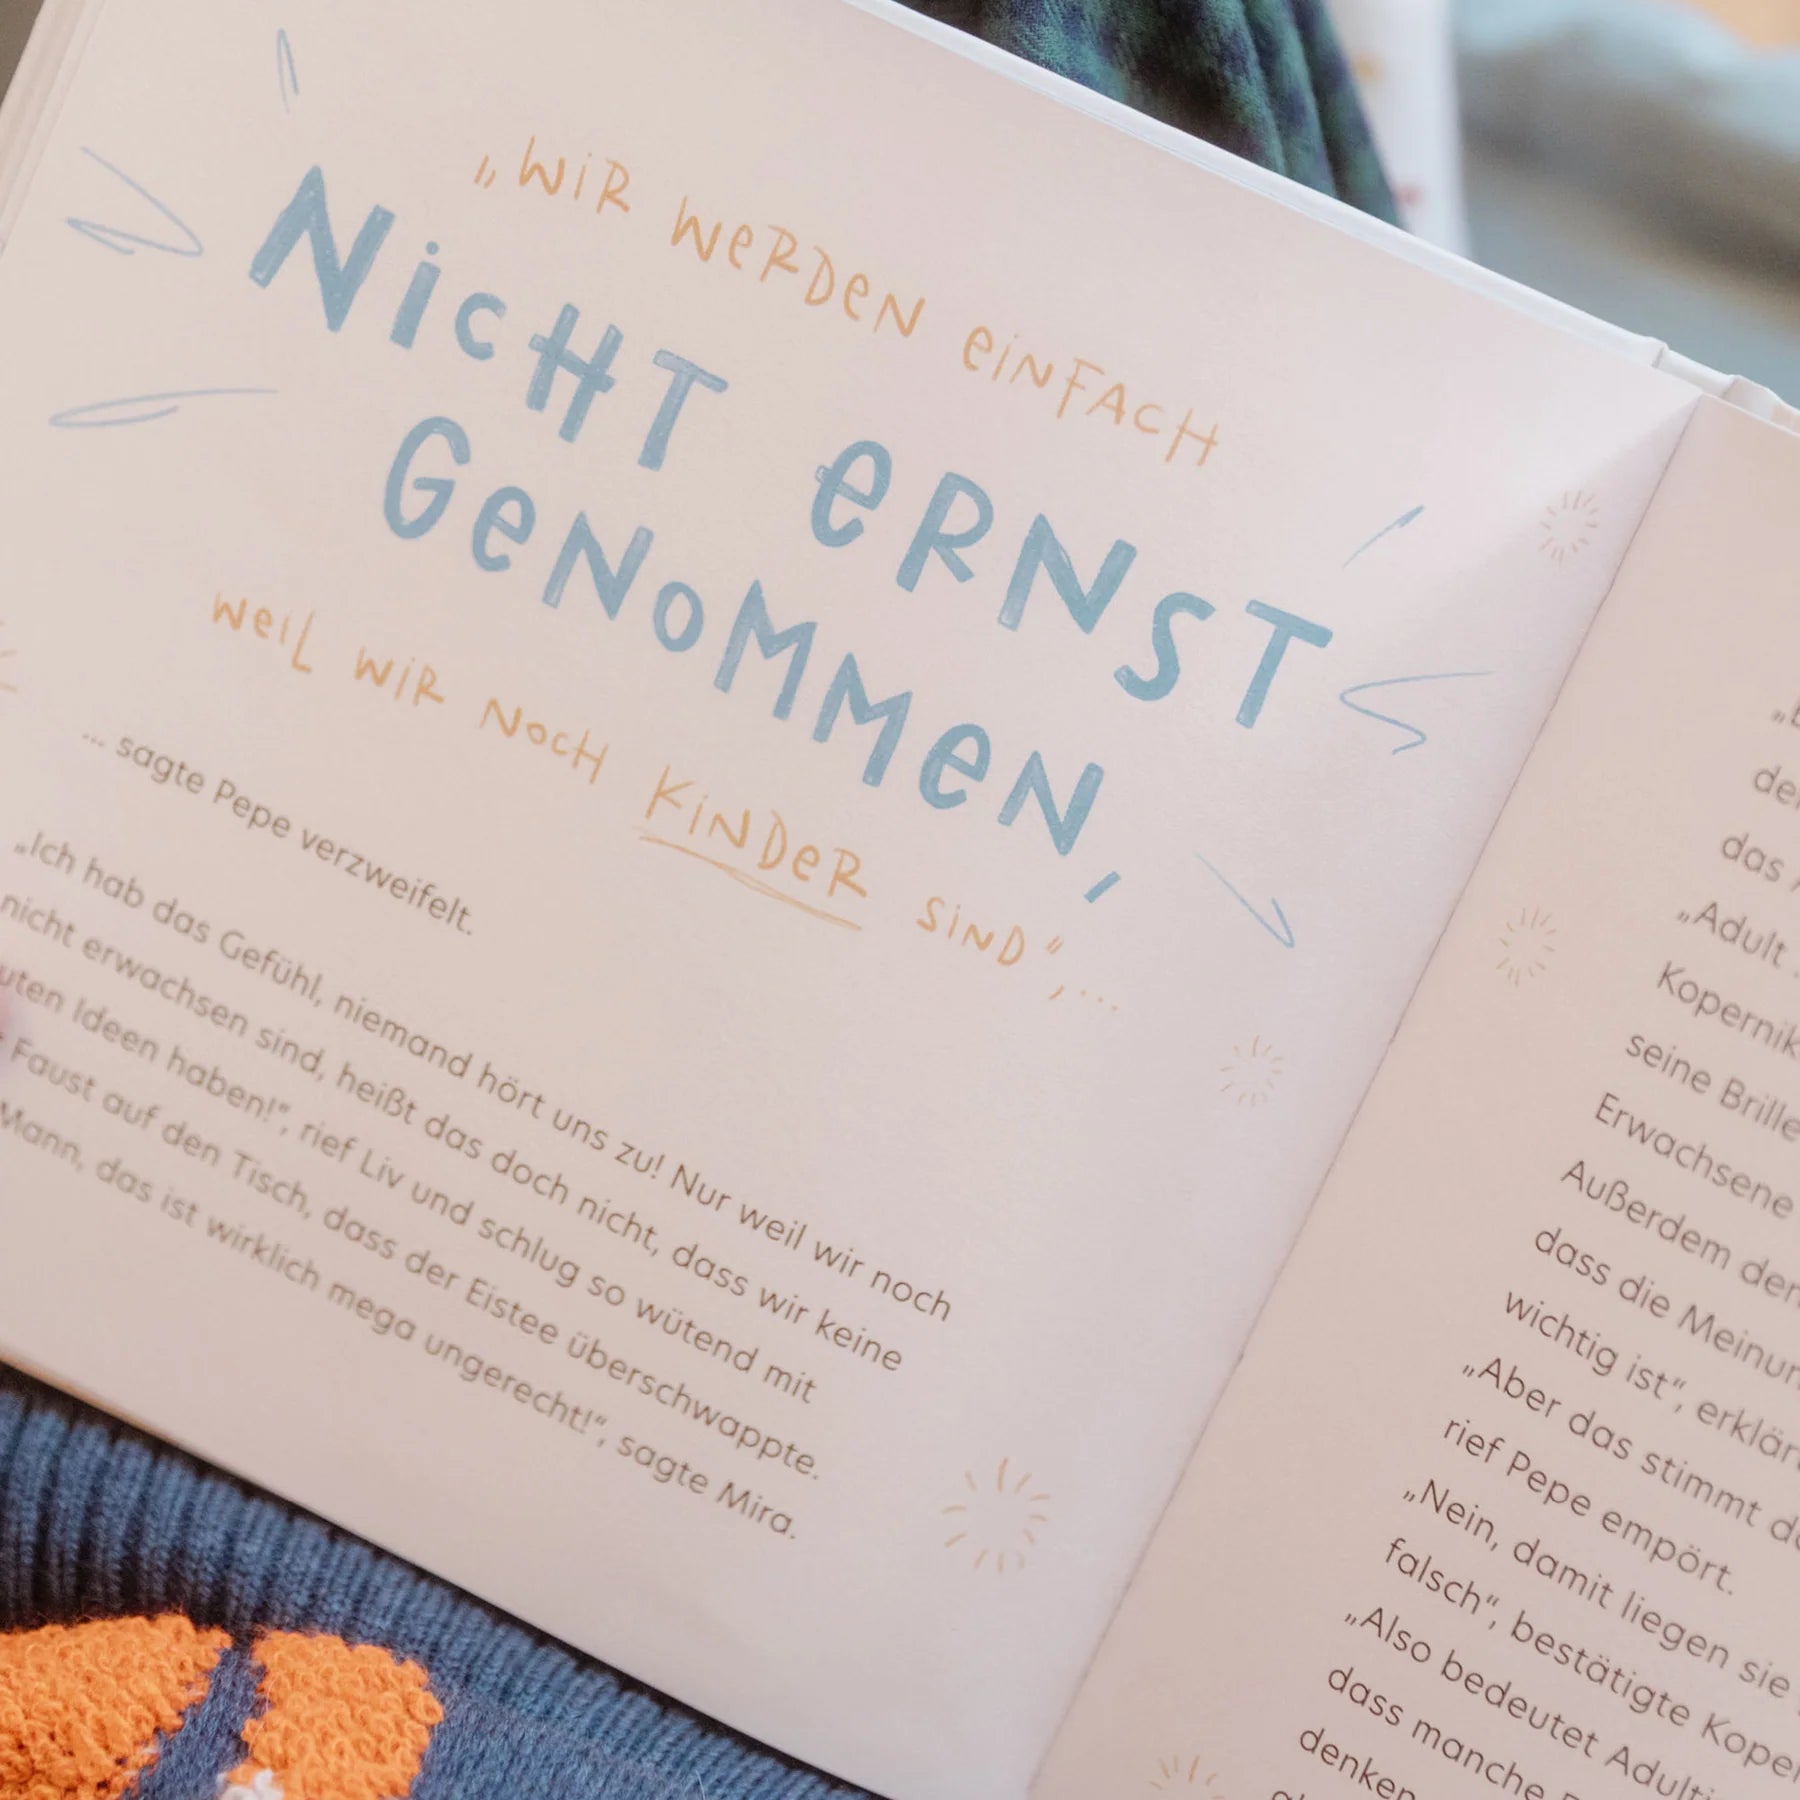 „WIR WERDEN EINFACH
NICHT ERNST
GENOMMEN,
WEIL WIR NOCH KINDER SIND“, ...
... sagte Pepe verzweifelt.
„Ich hab das Gefühl, niemand hört uns zu! Nur weil wir noch
nicht erwachsen sind, heißt das doch nicht, dass wir keine
Ideen haben!“, rief Liv und schlug so wütend mit
Faust auf den Tisch, dass der Eistee überschwappte.
Mann, das ist wirklich mega ungerecht!“, sagte Mira.
das
„Adult
seine Brille
Erwachsene
Außerdem
dass die
wichtig ist“,
„Aber das stimmt
rief Pepe empört.
„Nein, damit liegen sie
falsch“, bestätigte
„Also bedeutet
dass manche
denken